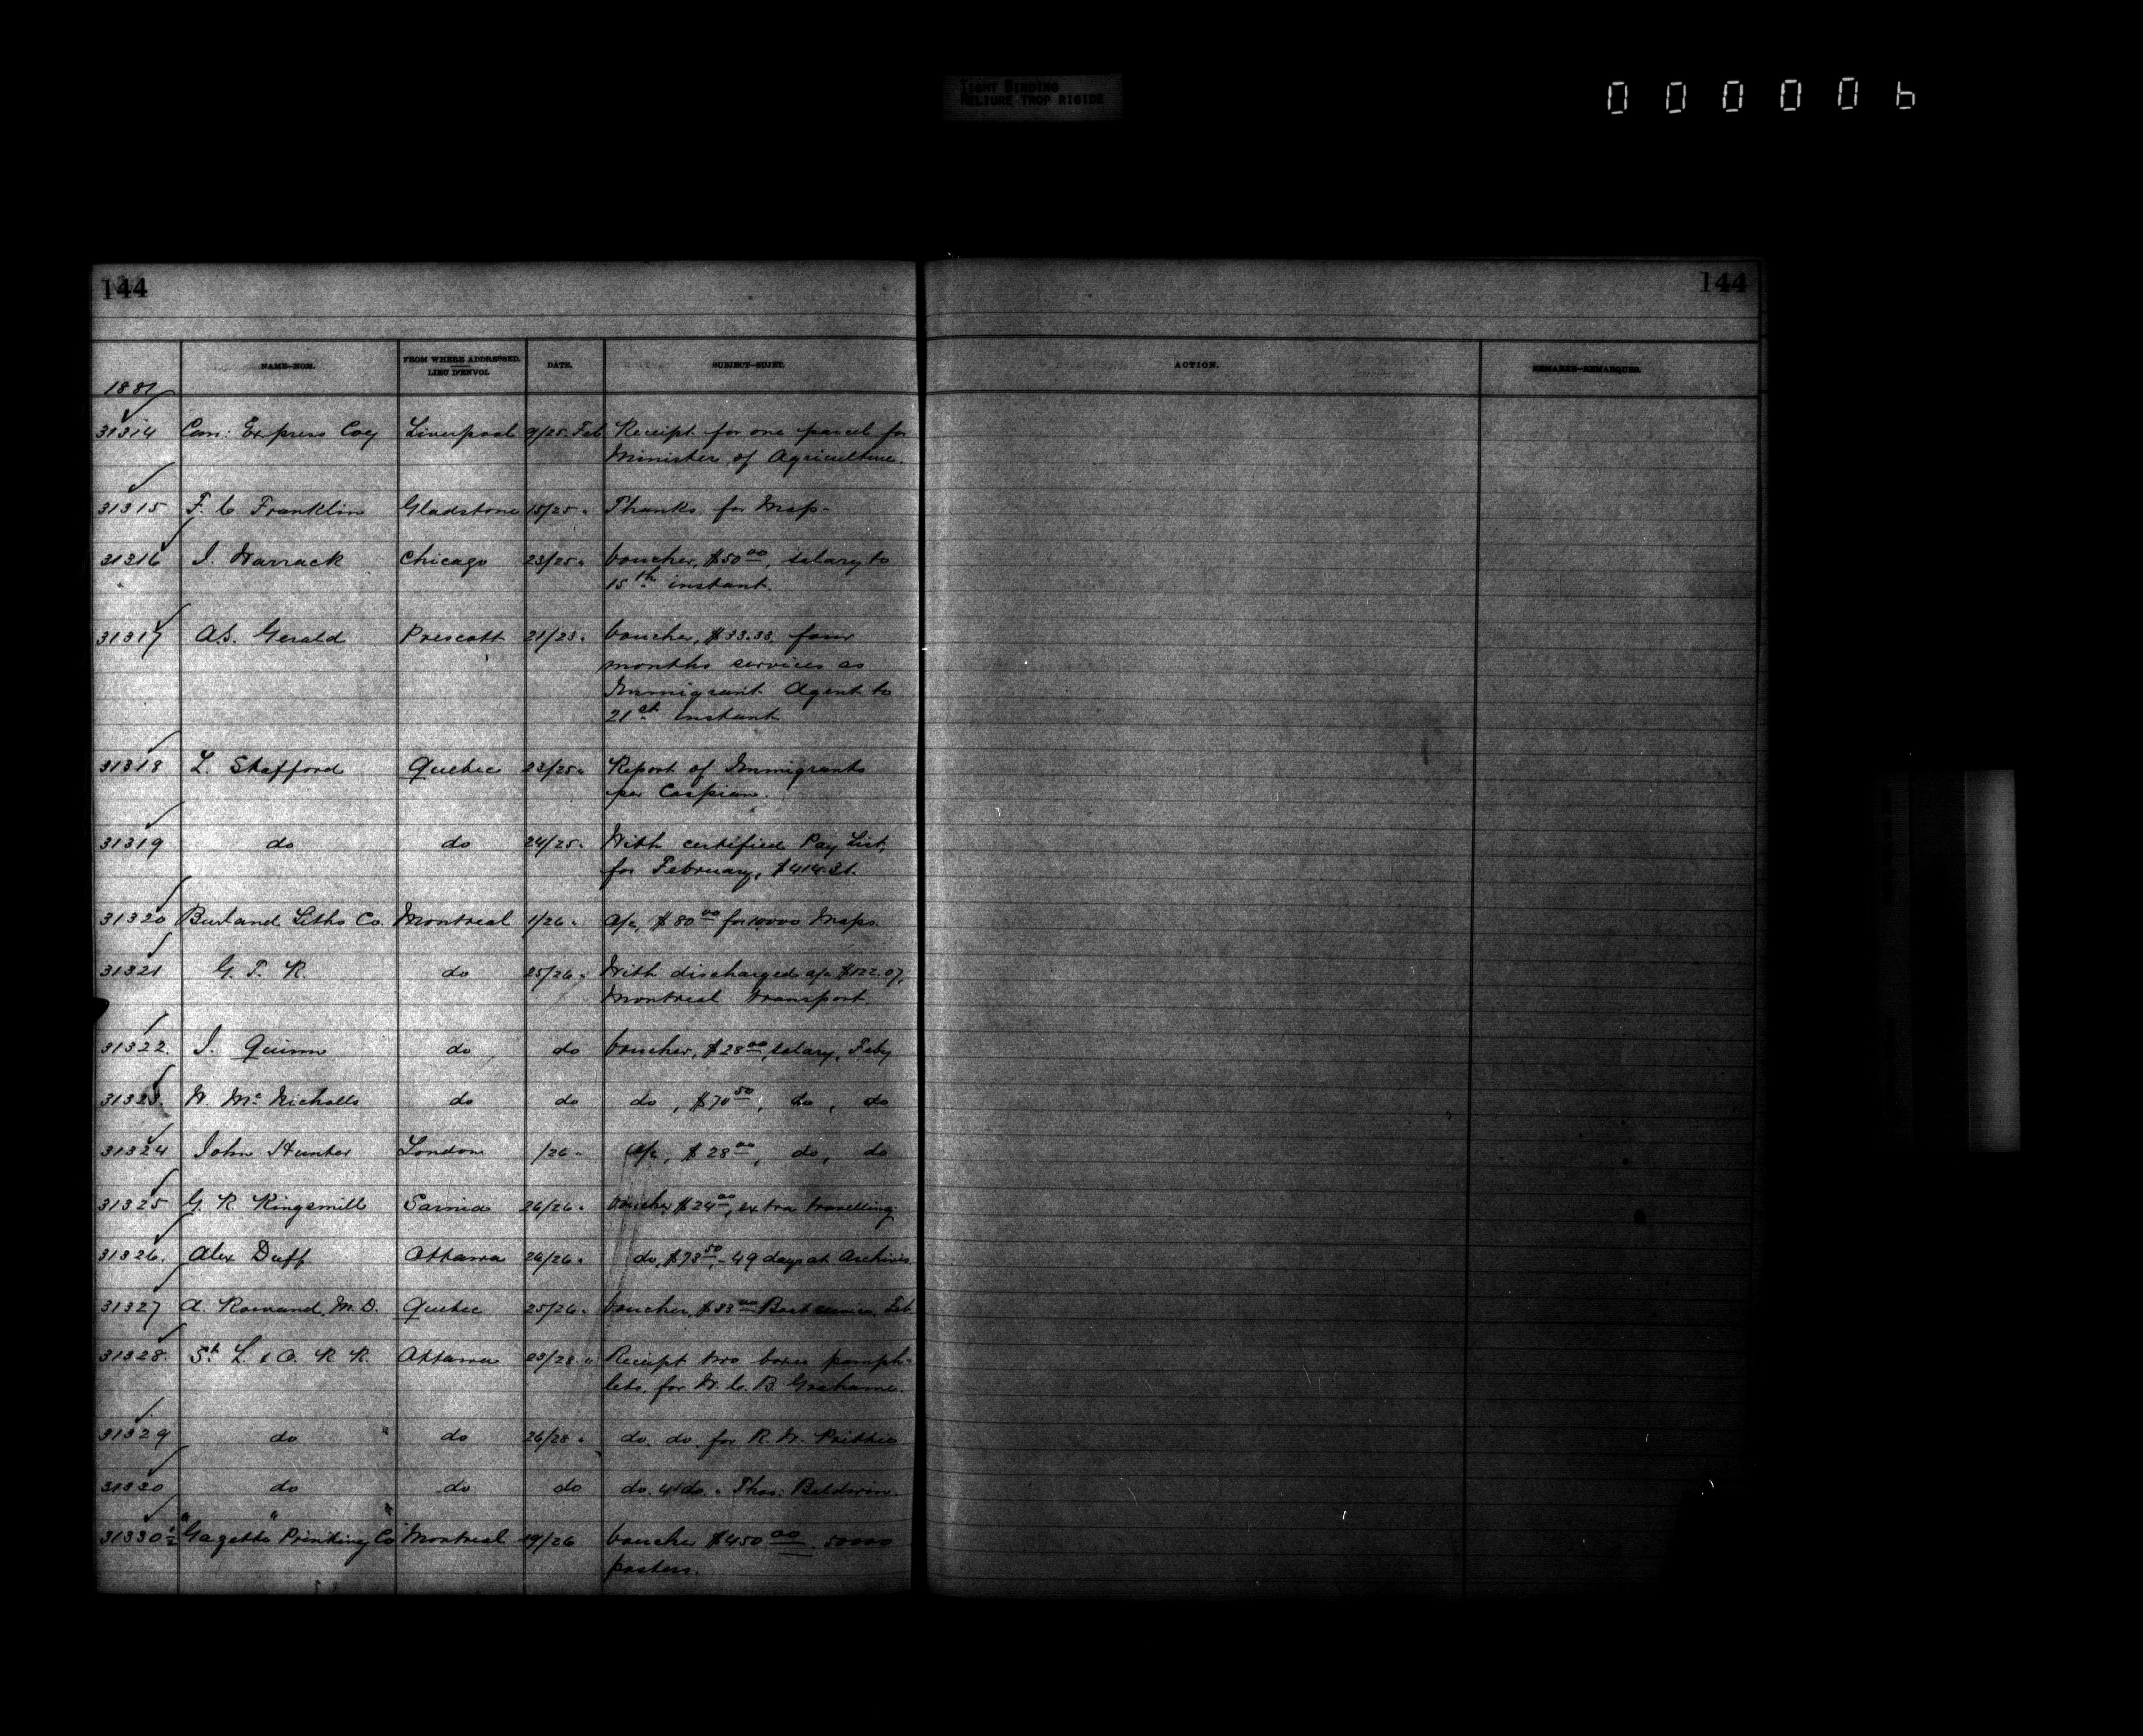 TIGHT BINDING
RELIURE TROP RIGIDE
000006
144 144
NAME—NOM. FROM WHERE ADDRESSED. LIEU D'ENVOI DATE. SUBJECT—SUJET. ACTION. REMARKS—REMARQUES.
1881
31314 Can: Express Coy Liverpool 9/25 Feb Receipt for one parcel for
Minister of Agriculture.
31315 F. C. Franklin Gladstone 15/25 " Thanks for Map-
31316 J. Warrack Chicago 23/25 " Voucher, $50 00, salary to
15th instant.
31317 A.S. Gerald Prescott 21/23 " Voucher, $33.33 four
months services as
Immigrant Agent to
21st instant
31318 L. Stafford Quebec 23/25 " Report of Immigrants
per Caspian.
31319 do do 24/25 " With certified Pay List,
for February,
31320 Burland Litho Co. Montreal 1/26 " A/c, $80 00 for 10,000 Maps.
31321 G. T. R. do 25/26 " With discharged a/c $122.07,
Montreal transport.
31322. J. Quinn do do Voucher, $28 00, salary, Feby
31323. W. Mc Nicholls do do do, $70 50, do, do
31324 John Hunter London /26 " A/c, $28 00, do, do
31325 G. R. Kingsmill Sarnia 26/26 " Voucher $24 00, extra travelling
31326. Alex Duff Ottawa 26/26 " do, $73 50, - 49 days at Archives.
31327 A. Rowand, M.D. Quebec 25/26 " Voucher, $33 00 Boat service, Feb
31328. St L. & O. R R. Ottawa 23/28 " Receipt two boxes pamph-
lets, for W. C. B. Grahame.
31329 do do 26/28 " do. do. for R. W. Prittie
31330 do do do do. 4 do. " Thos: Baldwin.
31330½ "Gazette" Printing Co Montreal 19/26 Voucher $450 00 50000
posters.